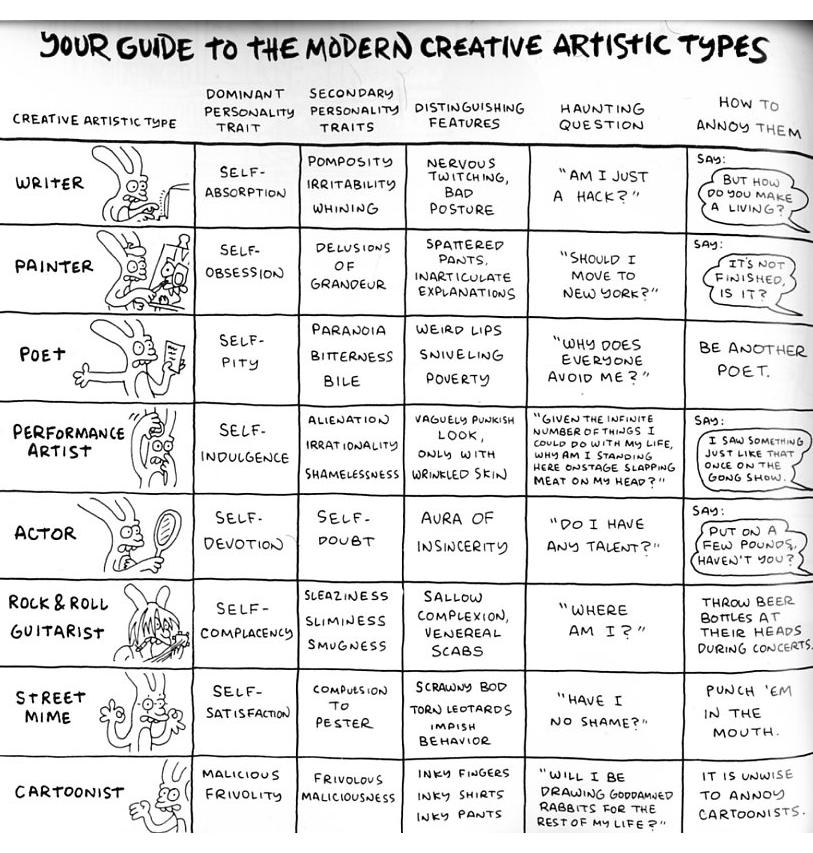 YOUR GUIDE TO THE MODERN CREATIVE ARTISTIC TYPES
CREATIVE ARTISTIC TYPE
DOMINANT
PERSONALITY
TRAIT
SECONDARY
PERSONALITY
TRAITS
DISTINGUISHING
FEATURES
HAUNTING
QUESTION
HOW TO
ANNOY THEM
WRITER
SELF-
ABSORPTION
POMPOSITY
IRRITABILITY
WHINING
NERVOUS
TWITCHING,
BAD
POSTURE
"AM I JUST
A HACK?"
SAY:
BUT HOW
DO YOU MAKE
A LIVING?
PAINTER
SELF-
OBSESSION
DELUSIONS
OF
GRANDEUR
SPATTERED
PANTS,
INARTICULATE
EXPLANATIONS
"SHOULD I
MOVE TO
NEW YORK?"
SAY:
IT'S NOT
FINISHED,
IS IT?
POET
SELF-
PITY
PARANOIA
BITTERNESS
BILE
WEIRD LIPS
SNIVELING
POVERTY
"WHY DOES
EVERYONE
AVOID ME?"
BE ANOTHER
POET.
PERFORMANCE
ARTIST
SELF-
INDULGENCE
ALIENATION
IRRATIONALITY
SHAMELESSNESS
VAGUELY PUNKISH
LOOK,
ONLY WITH
WRINKLED SKIN
"GIVEN THE INFINITE
NUMBER OF THINGS I
COULD DO WITH MY LIFE,
WHY AM I STANDING
HERE ONSTAGE SLAPPING
MEAT ON MY HEAD?"
SAY:
I SAW SOMETHING
JUST LIKE THAT
ONCE ON THE
GONG SHOW.
ACTOR
SELF-
DEVOTION
SELF-
DOUBT
AURA OF
INSINCERITY
"DO I HAVE
ANY TALENT?"
SAY:
PUT ON A
FEW POUNDS,
HAVEN'T YOU?
ROCK & ROLL
GUITARIST
SELF-
COMPLACENCY
SLEAZINESS
SLIMINESS
SMUGNESS
SALLOW
COMPLEXION,
VENEREAL
SCABS
"WHERE
AM I?"
THROW BEER
BOTTLES AT
THEIR HEADS
DURING CONCERTS.
STREET
MIME
SELF-
SATISFACTION
COMPULSION
TO
PESTER
SCRAWNY BOD
TORN LEOTARDS
IMPISH
BEHAVIOR
"HAVE I
NO SHAME?"
PUNCH 'EM
IN THE
MOUTH.
CARTOONIST
MALICIOUS
FRIVOLITY
FRIVOLOUS
MALICIOUSNESS
INKY FINGERS
INKY SHIRTS
INKY PANTS
"WILL I BE
DRAWING GODDAMNED
RABBITS FOR THE
REST OF MY LIFE?"
IT IS UNWISE
TO ANNOY
CARTOONISTS.